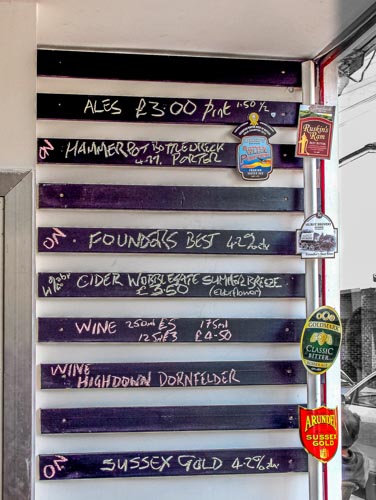 ALES £3.00 pint 1.50 ½
ON HAMMERPOT BOTTLEWRECK
4.7% PORTER
ON FOUNDERS BEST 4.2% abv
CIDER WOBBLEGATE SUMMER BREEZE
£3.50 (Elderflower)
WINE 250ml £5 175ml
125ml £3 £4.50
WINE
HIGHDOWN DORNFELDER
ON SUSSEX GOLD 4.2% abv
Ruskin's
Ram
GOLDSTAR
CLASSIC
BITTER
ARUNDEL
SUSSEX
GOLD